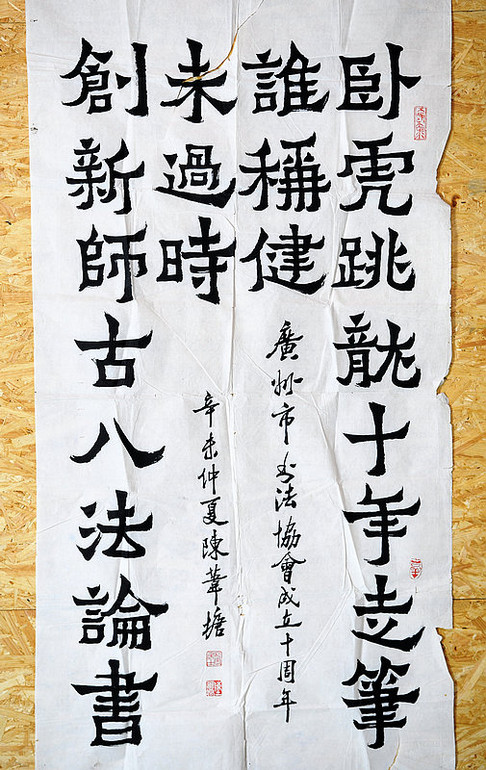 卧虎跳龍十年走筆
誰稱健
廣州市书法協會成立十周年
創新師古八法論書
未過時
辛未仲夏陳